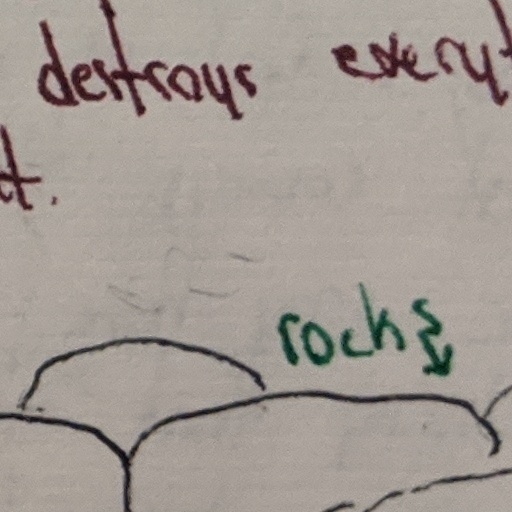 destroys everyt
t.
rocks